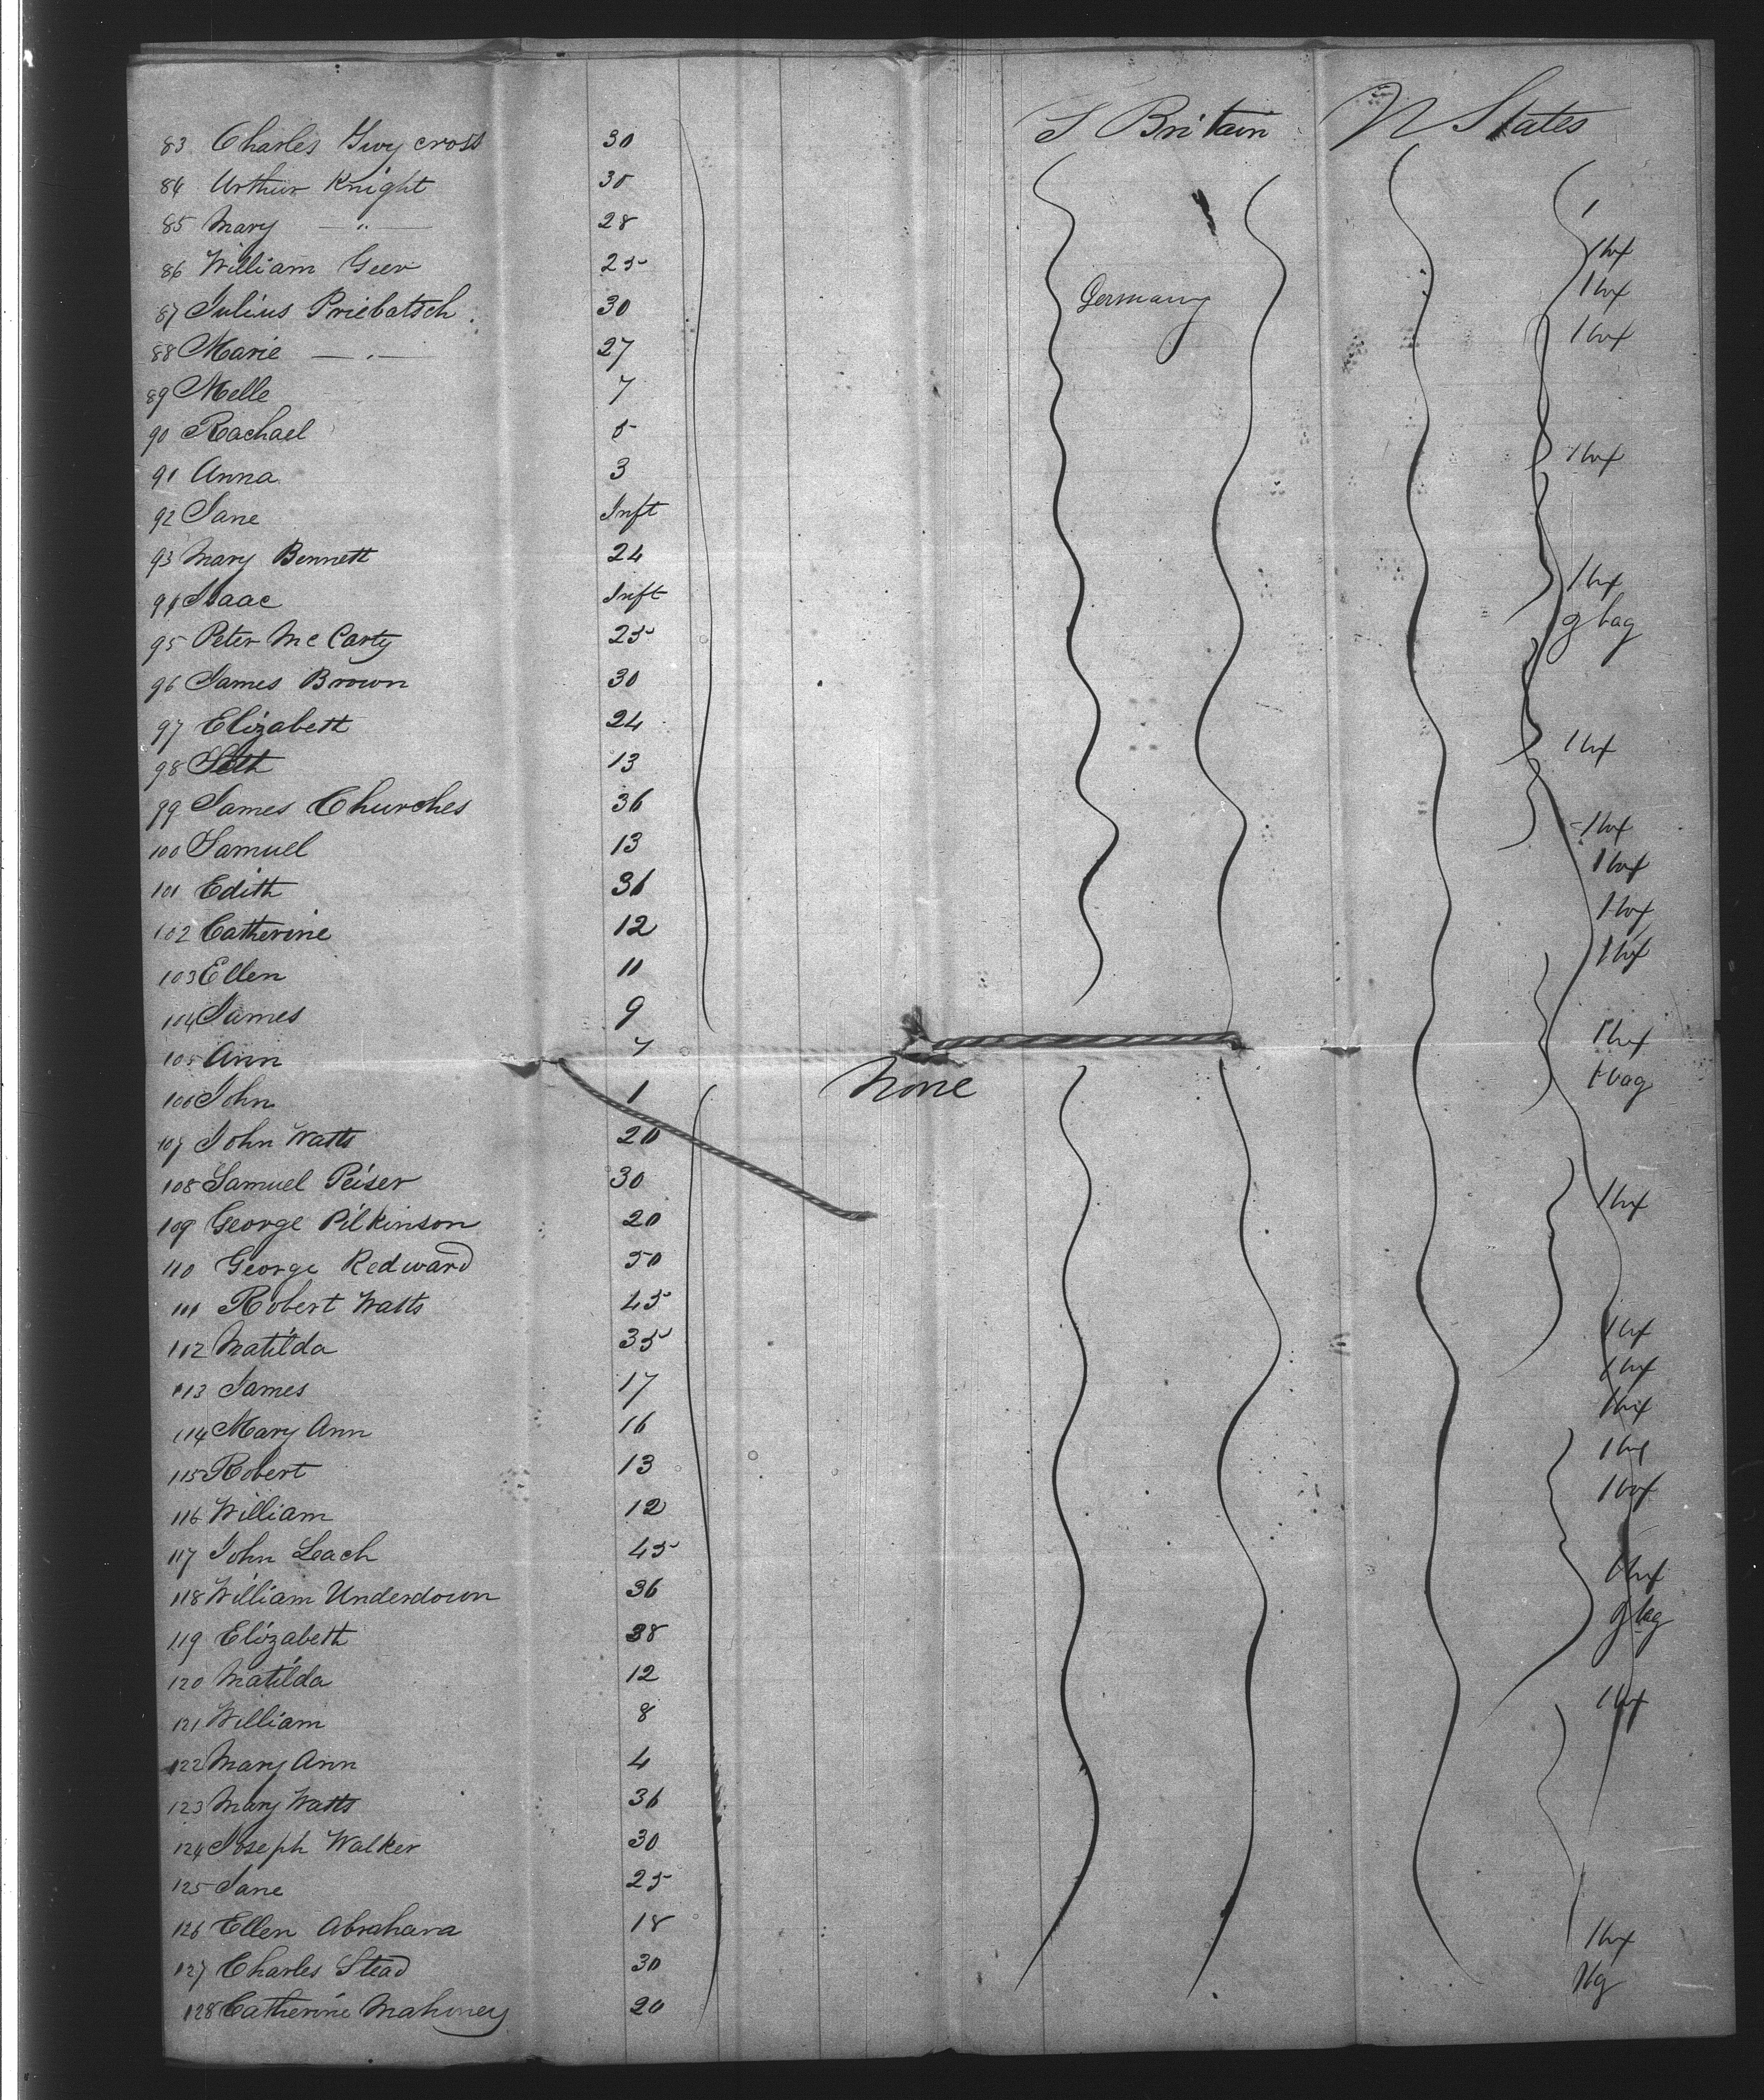 G Britain U States
83 Charles Gwy cross 30
84 Arthur Knight 30 1
85 Mary — " — 28 1 bx
86 William Geer 25 1 bx
87 Julius Priebatsch 30 Germany 1 bx
88 Marie — " — 27
89 Melle 7
90 Rachael 5 1 bx
91 Anna 3
92 Jane Inft
93 Mary Bennett 24 1 bx
94 Isaac Inft bag
95 Peter Mc Carty 25
96 James Brown 30
97 Elizabeth 24 1 bx
98 Seth 13
99 James Churches 36 1 bx
100 Samuel 13 1 box
101 Edith 36 1 bx
102 Catherine 12 1 bx
103 Ellen 11
104 James 9 1 bx
105 Ann 7 1 bag
106 John 1 None
107 John Watts 20
108 Samuel Peiser 30 1 bx
109 George Pilkinson 20
110 George Redward 50
111 Robert Watts 45 1 bx
112 Matilda 35 1 bx
113 James 17 1 bx
114 Mary Ann 16 1 bx
115 Robert 13 1 box
116 William 12
117 John Leach 45 1 bx
118 William Underdown 36 bag
119 Elizabeth 38
120 Matilda 12 1 bx
121 William 8
122 Mary Ann 4
123 Mary Watts 36
124 Joseph Walker 30
125 Jane 25
126 Ellen Abrahara 18 1 bx
127 Charles Stead 30
128 Catherine Mahoney 20